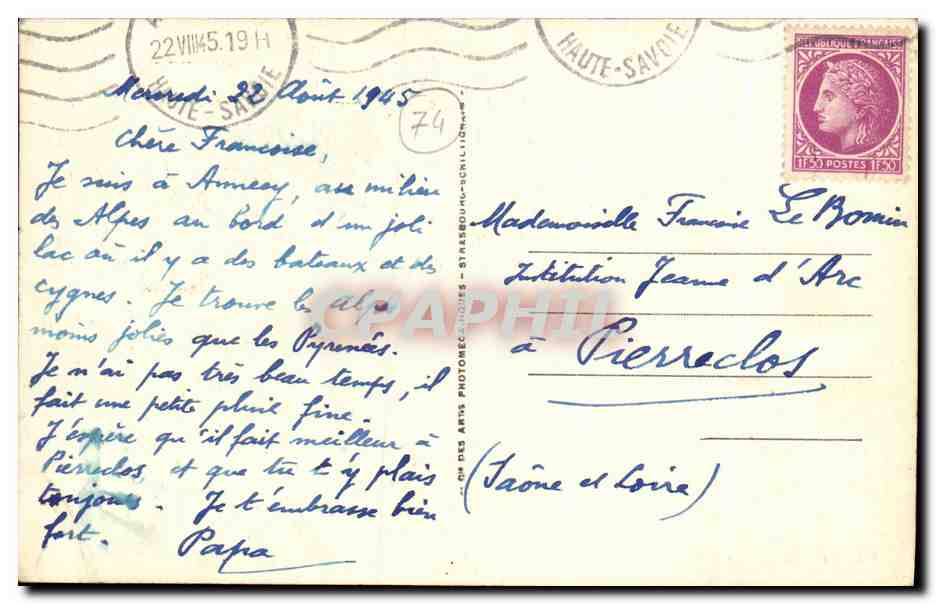 22 VIII 45. 19 H
HAUTE-SAVOIE
HAUTE-SAVOIE
REPUBLIQUE FRANÇAISE
1F50 POSTES 1F50
Mercredi 22 Août 1945
74
Chère Françoise,
Je suis à Annecy, au milieu
des Alpes au bord d'un joli
lac où il y a des bateaux et des
cygnes. Je trouve les Alpes
moins jolies que les Pyrenées.
Je n'ai pas très beau temps, il
fait une petite pluie fine.
J'espère qu'il fait meilleur à
Pierreclos, et que tu t'y plais
toujours. Je t'embrasse bien
fort. Papa
Cie DES ARTS PHOTOMECANIQUES - STRASBOURG-SCHILTIGHEIM
Mademoiselle Françoise Le Bomin
Institution Jeanne d'Arc
à Pierreclos
(Saône et Loire)
CPAPHIL